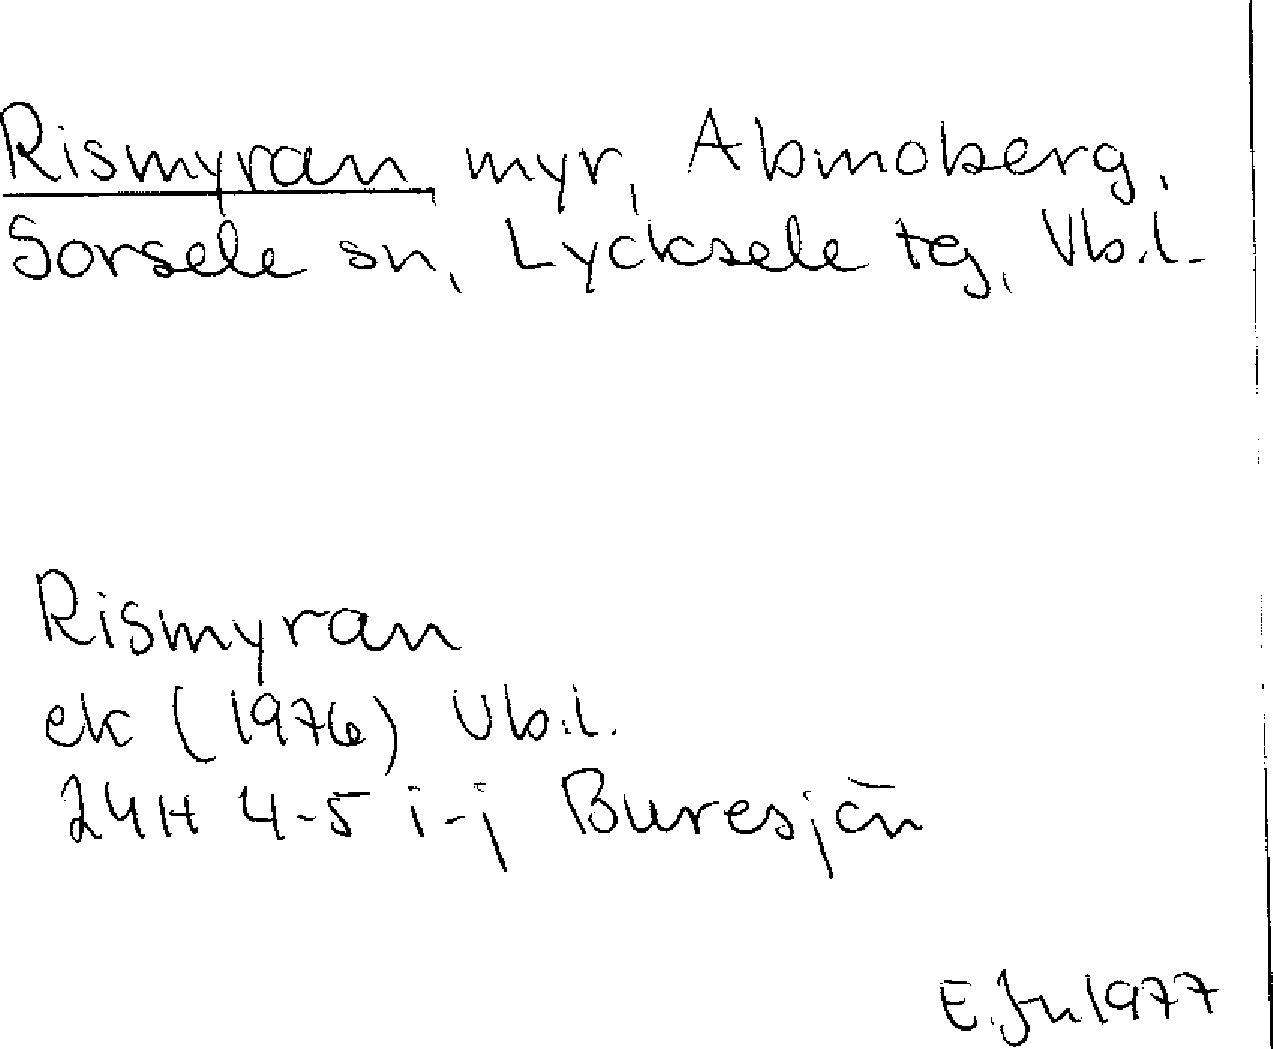 Rismyran myr, Abmoberg,
Sorsele sn, Lycksele tg, Vb.l.
Rismyran
ek (1976) Vb.l.
24H 4-5 i-j Buresjön
E. Jn 1977